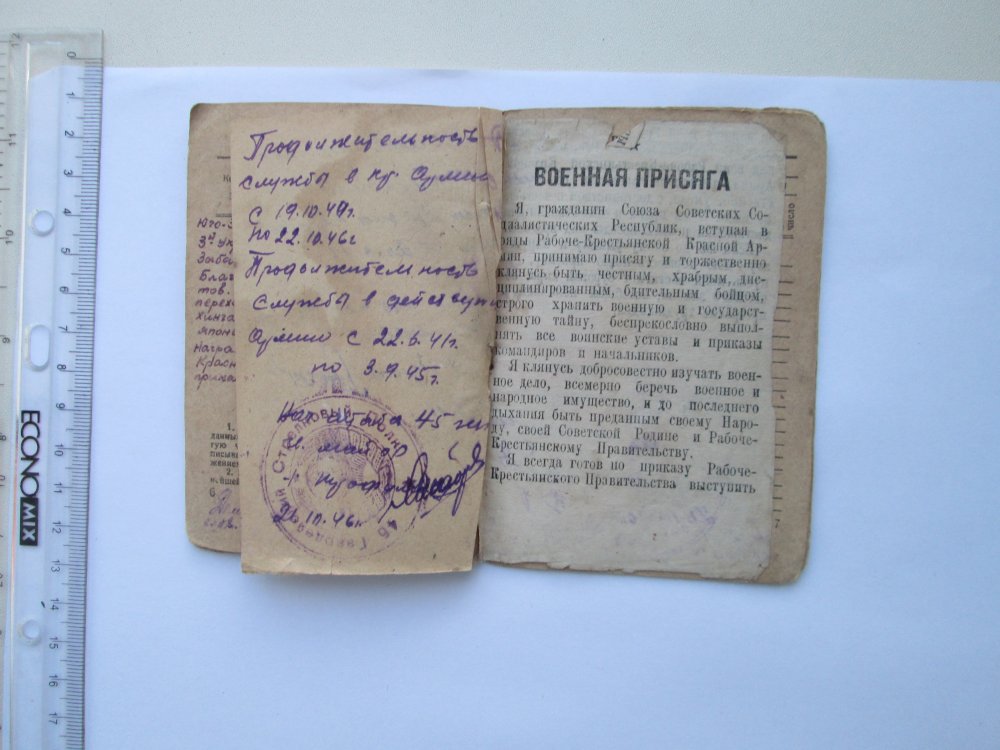 Продолжительность
службы в Кр. Армии
с 19.10.40г.
по 22.10.46г
Продолжительность
службы в действую
Армию с 22.6.41г.
по 3.9.45г.
Нач штаба 45
гв.
26.10.46г.
Юго-З
3й Ук
Забай
Благ
тов.
перех
хинга
Япони
Награ
Красн
прика
1.
данны
гую ч
писыв
жение
2.
ВОЕННАЯ ПРИСЯГА
Я, гражданин Союза Советских Со-
циалистических Республик, вступая в
ряды Рабоче-Крестьянской Красной Ар-
мии, принимаю присягу и торжественно
клянусь быть честным, храбрым, дис-
циплинированным, бдительным бойцом,
строго хранить военную и государст-
венную тайну, беспрекословно выпол-
нять все воинские уставы и приказы
командиров и начальников.
Я клянусь добросовестно изучать воен-
ное дело, всемерно беречь военное и
народное имущество, и до последнего
дыхания быть преданным своему Наро-
ду, своей Советской Родине и Рабоче-
Крестьянскому Правительству.
Я всегда готов по приказу Рабоче-
Крестьянского Правительства выступить
ECONOMIX
0
1
2
3
4
5
6
7
8
9
10
11
12
13
14
15
16
17